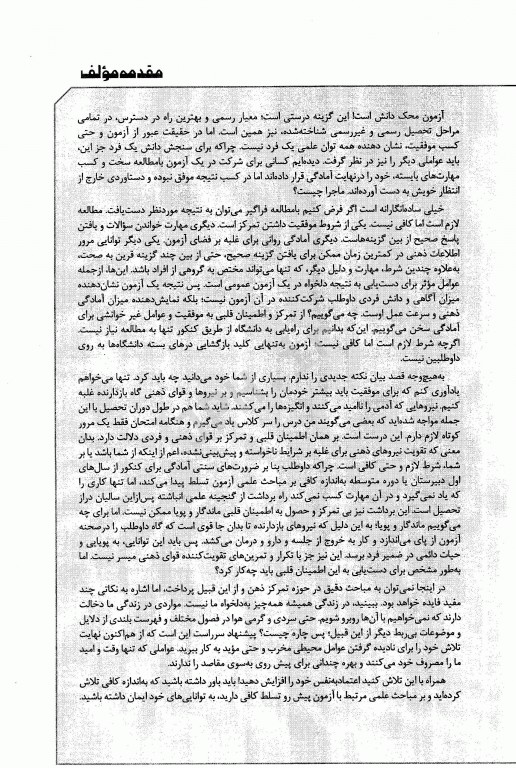 مقدمه مؤلف
آزمون محک دانش است! این گزینه درستی است؛ معیار رسمی و بهترین راه در دسترس، در تمامی
مراحل تحصیل رسمی و غیررسمی شناخته‌شده، نیز همین است. اما در حقیقت عبور از آزمون و حتی
کسب موفقیت، نشان دهنده همه توان علمی یک فرد نیست. چراکه برای سنجش دانش یک فرد جز این،
باید عواملی دیگر را نیز در نظر گرفت. دیده‌ایم کسانی برای شرکت در یک آزمون بامطالعه سخت و کسب
مهارت‌های بایسته، خود را درنهایت آمادگی قرار داده‌اند اما در کسب نتیجه موفق نبوده و دستاوردی خارج از
انتظار خویش به دست آورده‌اند. ماجرا چیست؟
خیلی ساده‌انگارانه است اگر فرض کنیم بامطالعه فراگیر می‌توان به نتیجه موردنظر دست‌یافت. مطالعه
لازم است اما کافی نیست. یکی از شروط موفقیت داشتن تمرکز است. دیگری مهارت خواندن سؤالات و یافتن
پاسخ صحیح از بین گزینه‌هاست. دیگری آمادگی روانی برای غلبه بر فضای آزمون. یکی دیگر توانایی مرور
اطلاعات ذهنی در کمترین زمان ممکن برای یافتن گزینه صحیح، حتی از بین چند گزینه قرین به صحت،
به‌علاوه چندین شرط، مهارت و دلیل دیگر، که تنها می‌تواند مختص به گروهی از افراد باشد. این‌ها، ازجمله
عوامل مؤثر برای دست‌یابی به نتیجه دلخواه در یک آزمون عمومی است. پس نتیجه یک آزمون نشان‌دهنده
میزان آگاهی و دانش فردی داوطلب شرکت‌کننده در آن آزمون نیست؛ بلکه نمایش‌دهنده میزان آمادگی
ذهنی و سرعت عمل اوست. چه می‌گوییم؟ از تمرکز و اطمینان قلبی به موفقیت و عوامل غیر خوانشی برای
آمادگی سخن می‌گوییم. این‌که بدانیم برای راه‌یابی به دانشگاه از طریق کنکور تنها به مطالعه نیاز نیست.
اگرچه شرط لازم است اما کافی نیست؛ آزمون به‌تنهایی کلید بازگشایی درهای بسته دانشگاه‌ها به روی
داوطلبین نیست.
به‌هیچ‌وجه قصد بیان نکته جدیدی را ندارم. بسیاری از شما خود می‌دانید چه باید کرد. تنها می‌خواهم
یادآوری کنم که برای موفقیت باید بیشتر خودمان را بشناسیم و بر نیروها و قوای ذهنی گاه بازدارنده غلبه
کنیم. نیروهایی که آدمی را ناامید می‌کنند و انگیزه‌ها را می‌کشند. شاید شما هم در طول دوران تحصیل با این
جمله مواجه شده‌اید که بعضی می‌گویند من درس را سر کلاس یاد می‌گیرم و هنگامه امتحان فقط یک مرور
کوتاه لازم دارم. این درست است. بر همان اطمینان قلبی و تمرکز بر قوای ذهنی و فردی دلالت دارد. بدان
معنی که تقویت نیروهای ذهنی برای غلبه بر شرایط ناخواسته و پیش‌بینی‌نشده، اعم از اینکه از شما باشد یا بر
شما، شرط لازم و حتی کافی است. چراکه داوطلب بنا بر ضرورت‌های سنتی آمادگی برای کنکور از سال‌های
اول دبیرستان یا دوره متوسطه به‌اندازه کافی بر مباحث علمی آزمون تسلط پیدا می‌کند، اما تنها کاری را
که یاد نمی‌گیرد و در آن مهارت کسب نمی‌کند راه برداشت از گنجینه علمی انباشته پس‌ازاین سالیان دراز
تحصیل است. این برداشت نیز بی تمرکز و حصول به اطمینان قلبی ماندگار و پویا ممکن نیست. اما برای چه
می‌گوییم ماندگار و پویا؛ به این دلیل که نیروهای بازدارنده تا بدان جا قوی است که گاه داوطلب را درصحنه
آزمون از پای می‌اندازد و کار به خروج از جلسه و دارو و درمان می‌کشد. پس باید این توانایی، به پویایی و
حیات دائمی در ضمیر فرد برسد. این نیز جز با تکرار و تمرین‌های تقویت‌کننده قوای ذهنی میسر نیست. اما
به‌طور مشخص برای دست‌یابی به این اطمینان قلبی باید چه‌کار کرد؟
در اینجا نمی‌توان به مباحث دقیق در حوزه تمرکز ذهن و از این قبیل پرداخت، اما اشاره به نکاتی چند
مفید فایده خواهد بود. ببینید، در زندگی همیشه همه‌چیز به‌دلخواه ما نیست. مواردی در زندگی ما دخالت
دارند که نمی‌خواهیم با آن‌ها روبرو شویم. حتی سردی و گرمی هوا در فصول مختلف و فهرست بلندی از دلایل
و موضوعات بی‌ربط دیگر از این قبیل؛ پس چاره چیست؟ پیشنهاد سرراست این است که از هم‌اکنون نهایت
تلاش خود را برای نادیده گرفتن عوامل محیطی مخرب و حتی مؤید به کار ببرید. عواملی که تنها وقت و امید
ما را مصروف خود می‌کنند و بهره چندانی برای پیش روی به‌سوی مقاصد را ندارند.
همراه با این تلاش کنید اعتمادبه‌نفس خود را افزایش دهید! باید باور داشته باشید که به‌اندازه کافی تلاش
کرده‌اید و بر مباحث علمی مرتبط با آزمون پیش رو تسلط کافی دارید، به توانایی‌های خود ایمان داشته باشید.